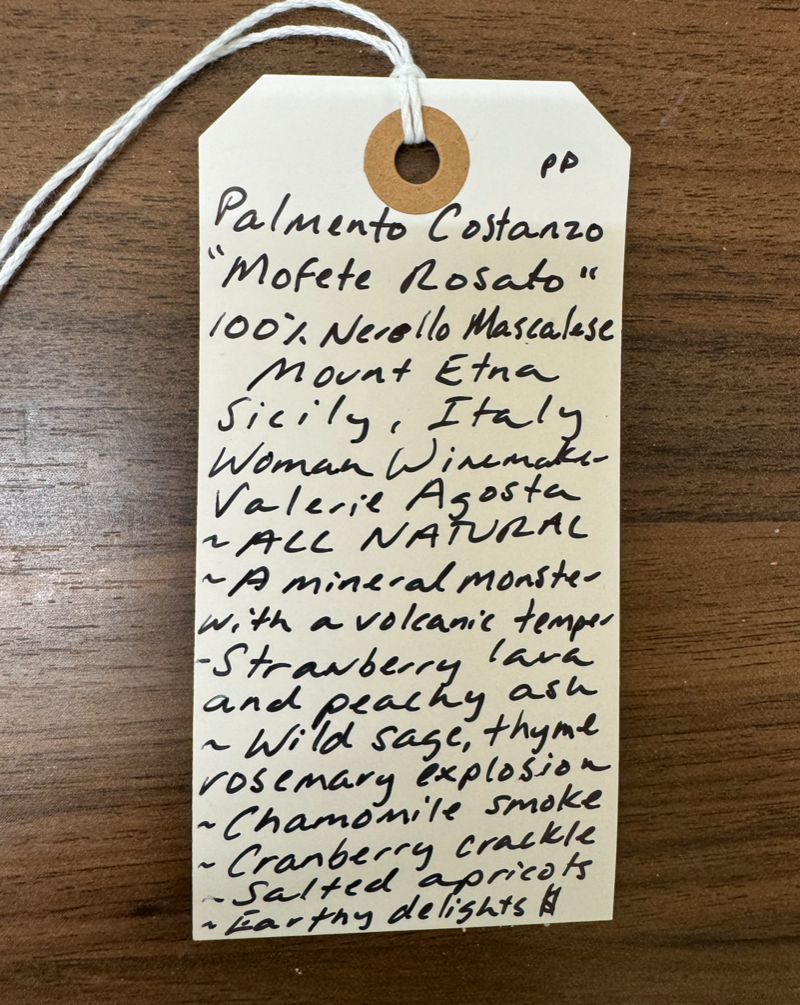 PD
Palmento Costanzo
"Mofete Rosato"
100% Nerello Mascalese
Mount Etna
Sicily, Italy
Woman Winemaker
Valerie Agosta
~ ALL NATURAL
~ A mineral monster
with a volcanic temper
-Strawberry lava
and peachy ash
~ Wild sage, thyme
rosemary explosion
~ Chamomile smoke
~ Cranberry crackle
~ Salted apricots
~ Earthy delights